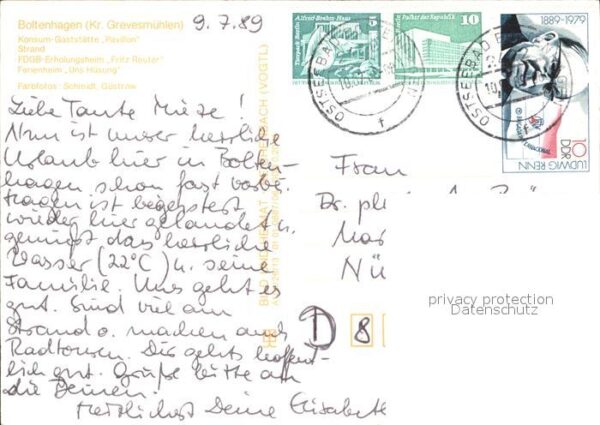 Boltenhagen (Kr. Grevesmühlen)
Konsum-Gaststätte „Pavillon"
Strand
FDGB-Erholungsheim „Fritz Reuter"
Ferienheim „Uns Hüsung"
Farbfotos: Schmidt, Güstrow
9.7.89
Liebe Tante Mieze!
Nun ist unser herrliche
Urlaub hier in Bolten-
hagen schon fast vorbei.
ist begeistert
wieder hier gelandet u.
genießt das herrliche
Wasser (22°C) u. seine
Familie. Uns geht es
gut. Sind viel am
Strand o. machen auch
Radtouren. Dir gehts hoffent-
lich gut. Grüße bitte an
die Deinen.
Herzlichst Deine Elisabeth
BILD UND HEIMAT REICHENBACH (VOGTL)
Tierpark Berlin
Alfred-Brehm-Haus
10
Palast der Republik
10
OSTSEEBAD
1889-1979
10
DDR
LUDWIG RENN
Frau
Dr. phil
Mar
Nü
D 8
privacy protection
Datenschutz